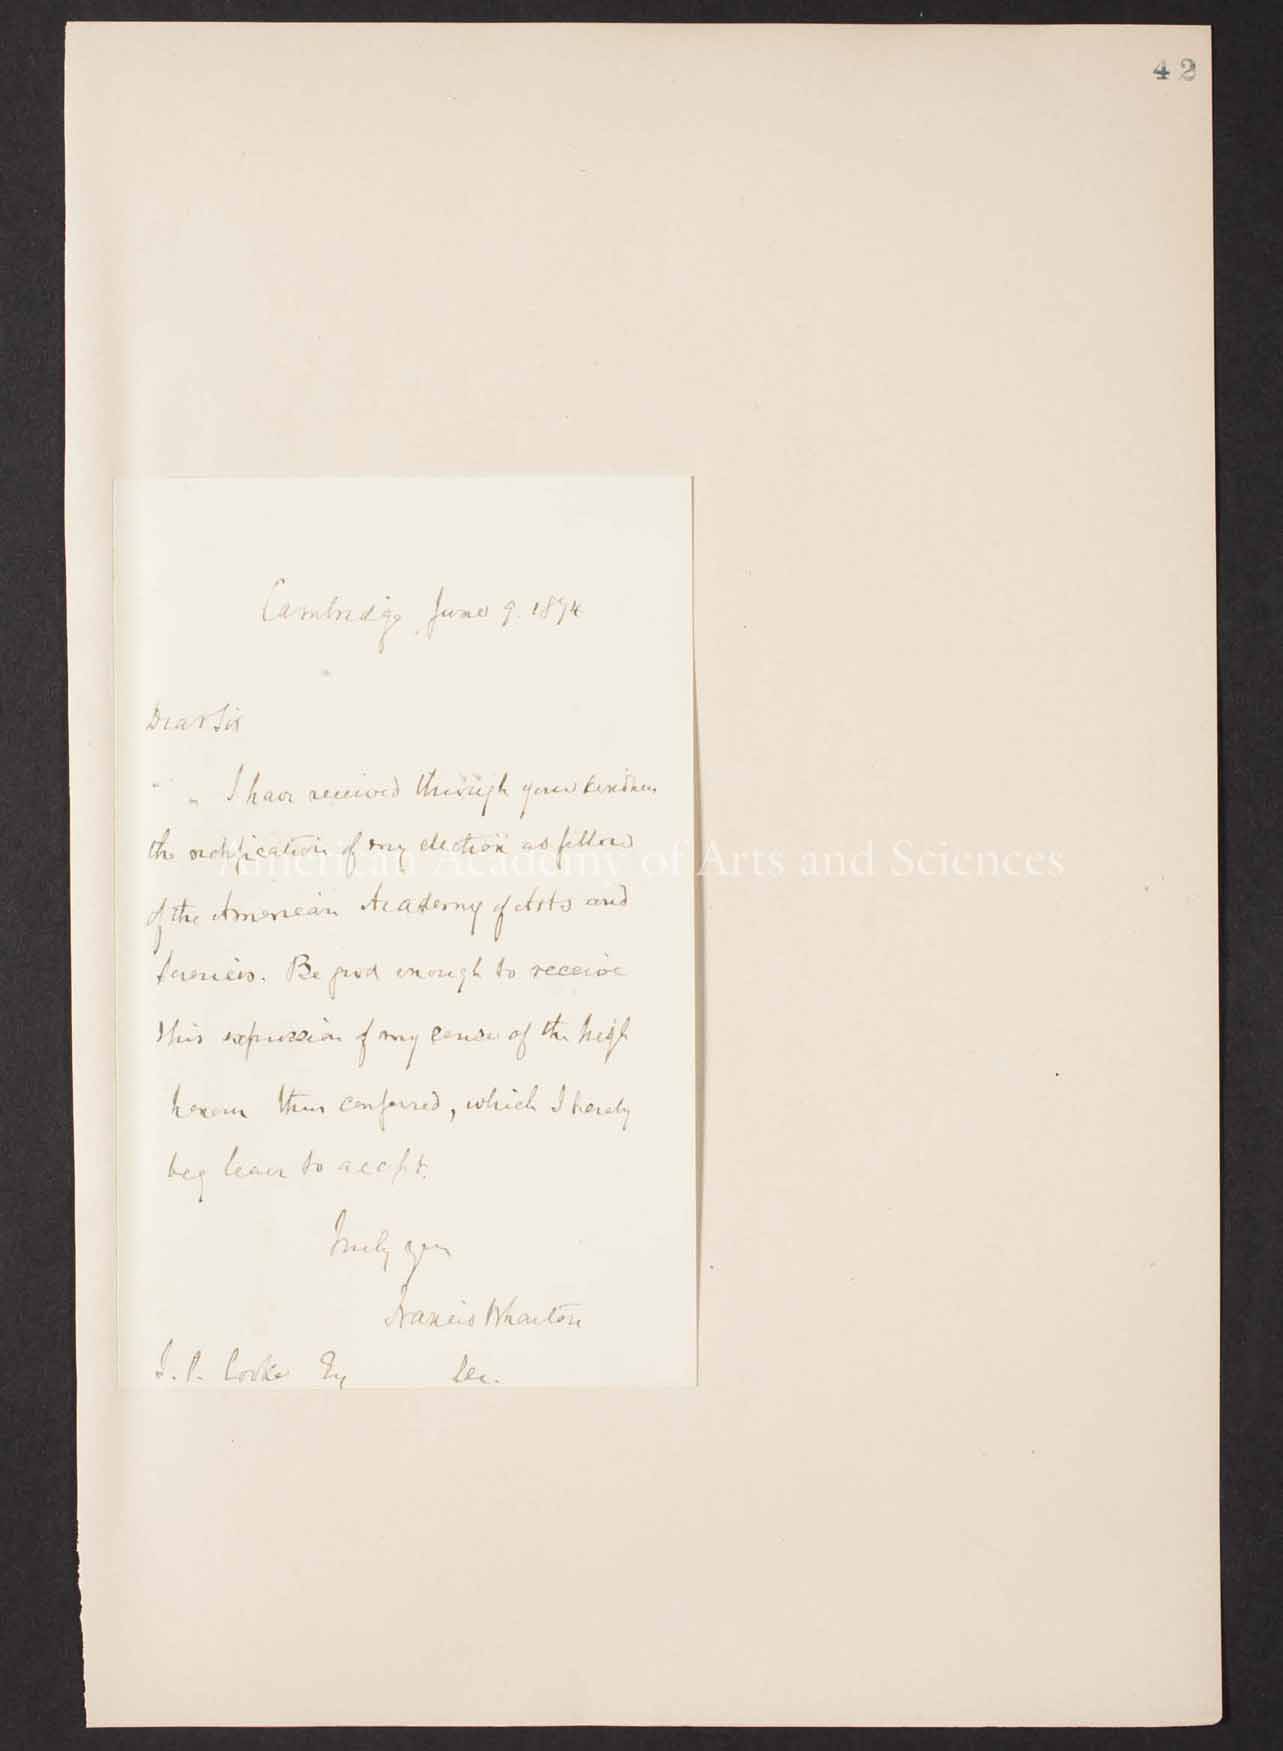 42
Cambridge June 9. 1874
Dear Sir
I have received through your kindness
the notification of my election as fellow
of the American Academy of Arts and
Sciences. Be good enough to receive
this expression of my sense of the high
honour thus conferred, which I hereby
beg leave to accept.
Truly yours
Francis Wharton
J. P. Cooke Esq Sec.
American Academy of Arts and Sciences